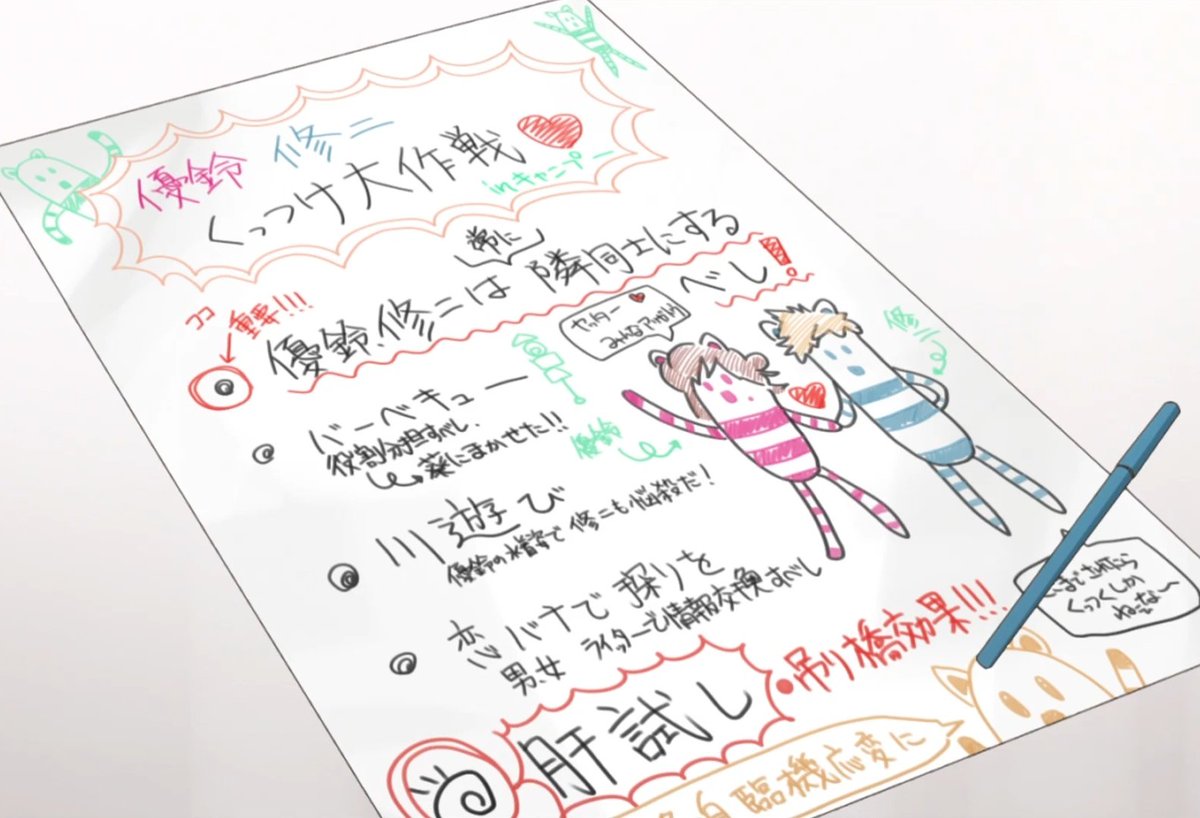 優鈴 修二
くっつけ大作戦
inキャンプー
ココ
重要!!!
常に
優鈴、修二は隣同士にする
べし!
ヤッター
みんなアリガト
修二
優鈴
バーベキュー
役割分担すべし、
葵にまかせた!!
川遊び
優鈴の水着姿で修二も悩殺だ!
恋バナで探りを
男、女 ライターで情報交換すべし
吊り橋効果!!!
肝試し
までされたら
くっつくしか
ねーなー
各自臨機応変に